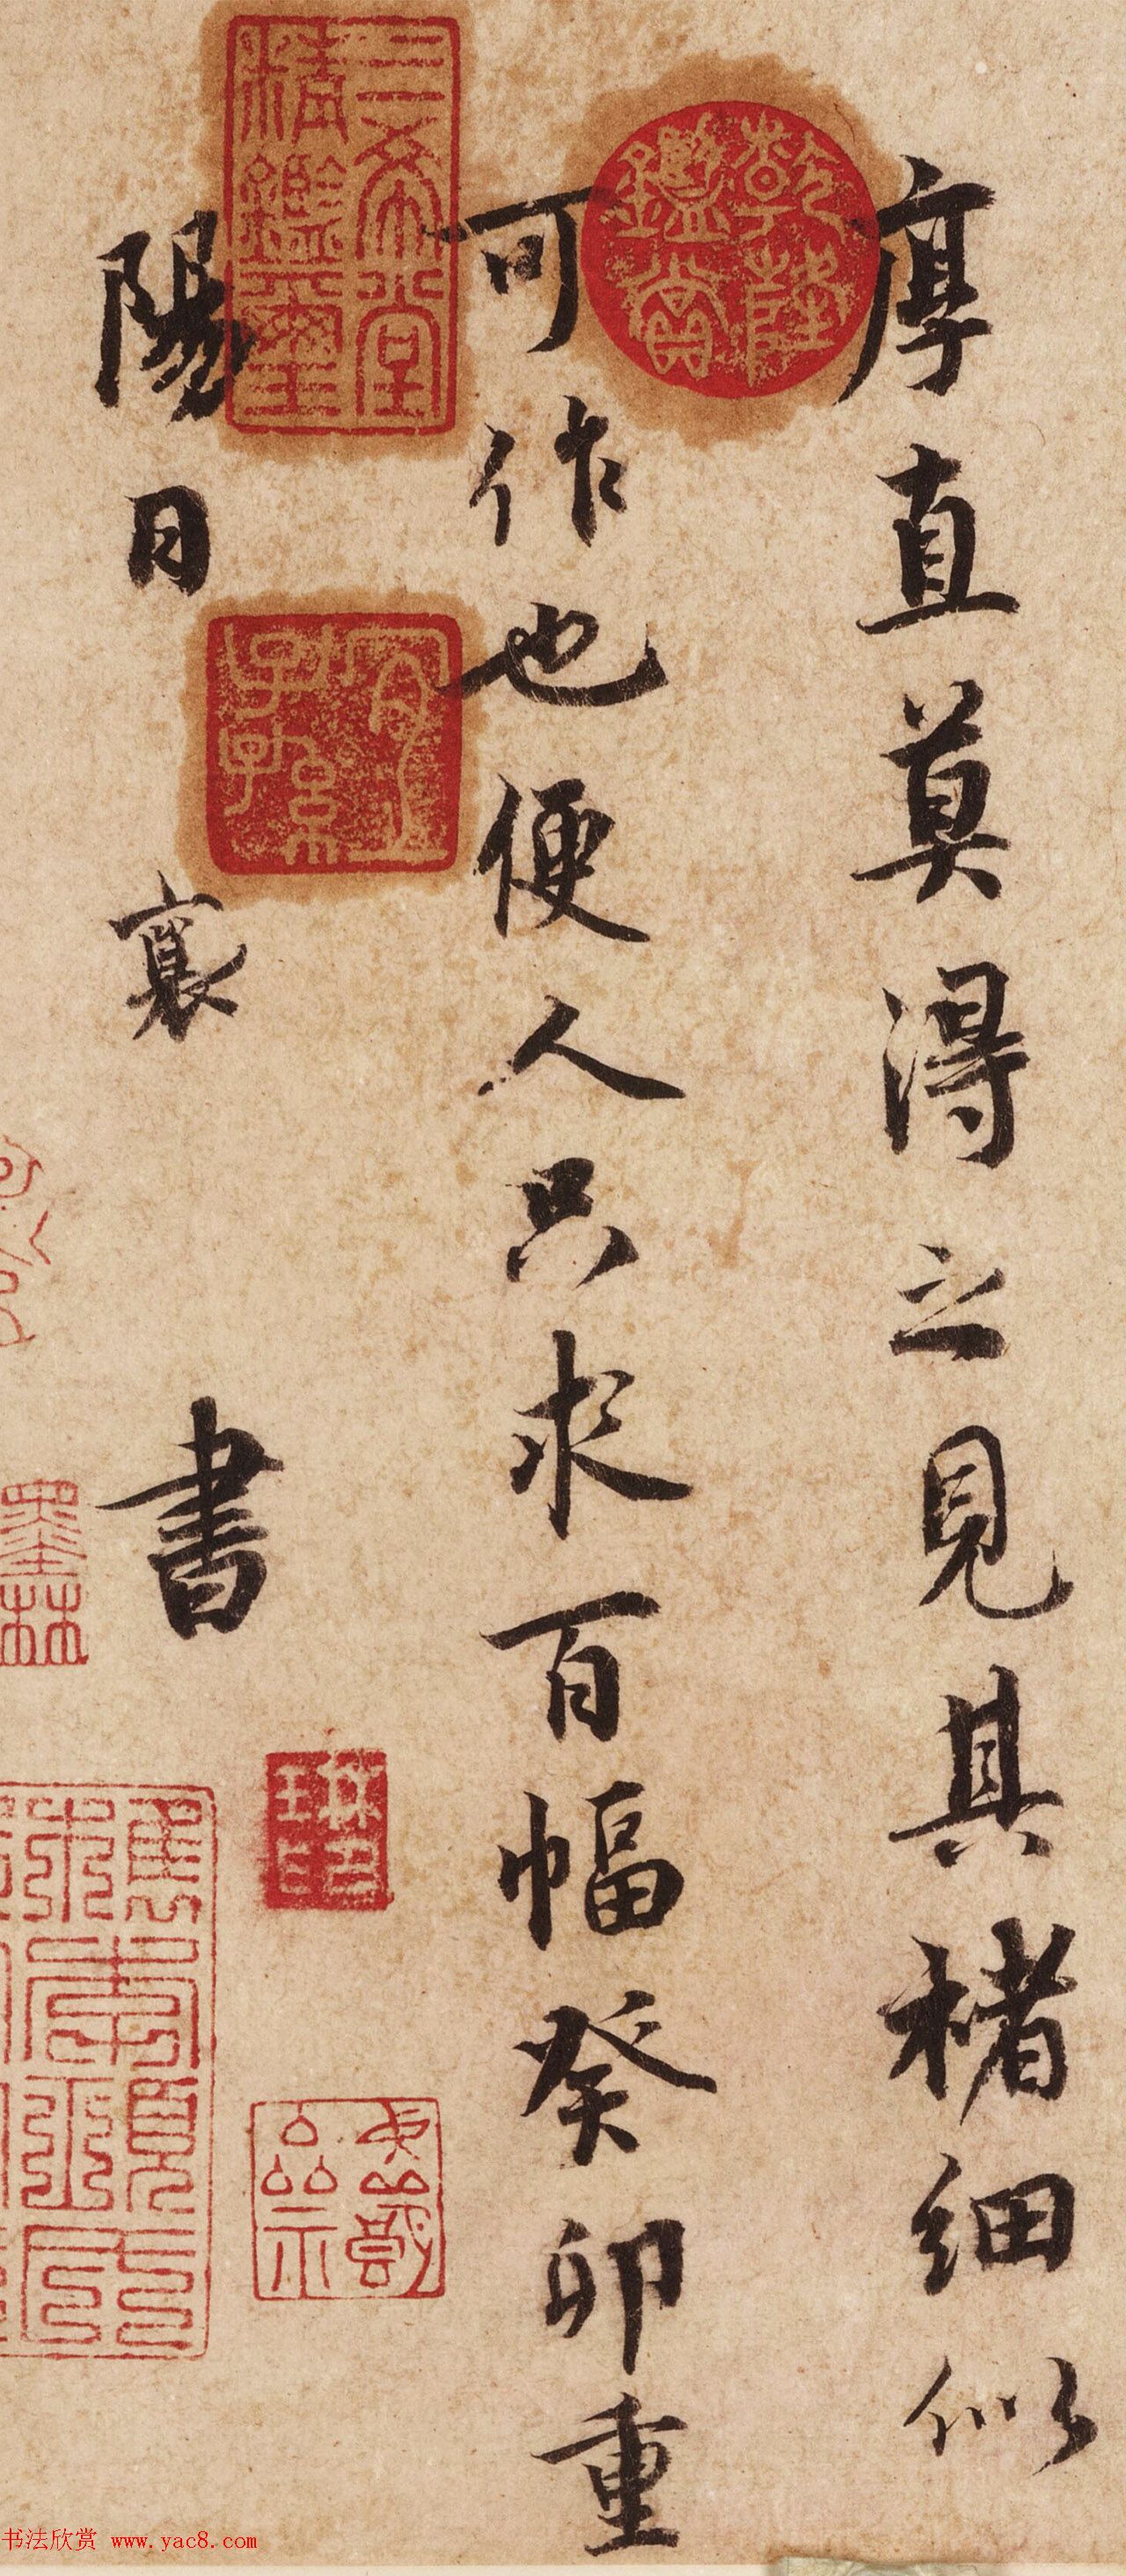 厚直莫得之見其楮細似
乾隆
鑑賞
可作也便人只求百幅癸卯重
三希堂
精鑑璽
宜
子孫
陽日 襄 書
墨林
书法欣赏 www.yac8.com